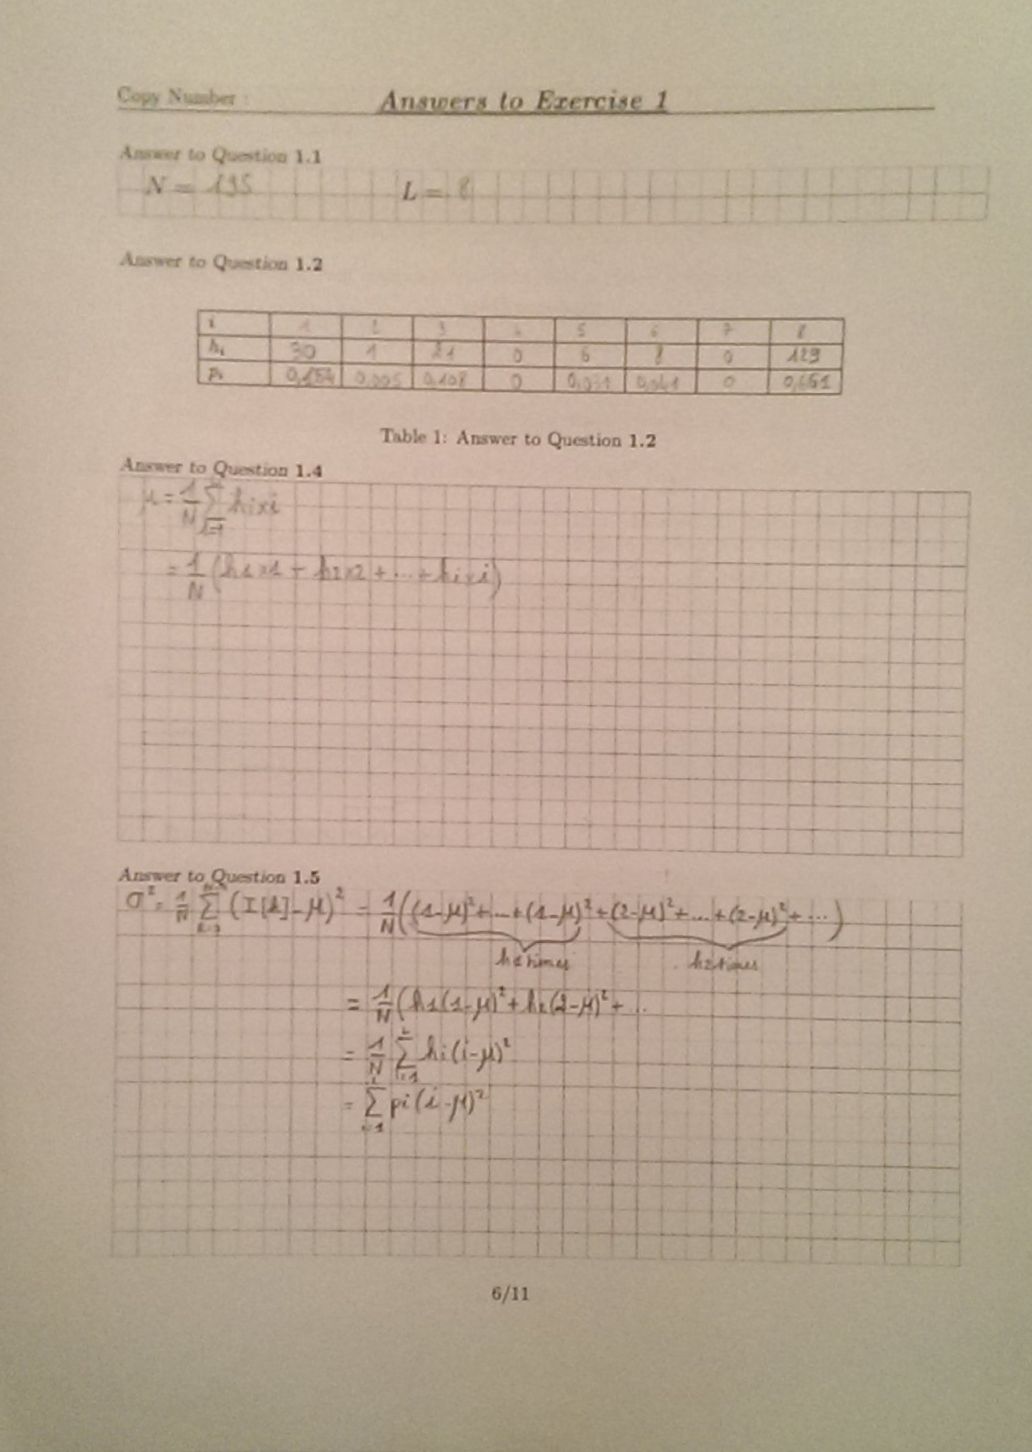 Copy Number :
Answers to Exercise 1
Answer to Question 1.1
N = 195 L = 8
Answer to Question 1.2
i 1 2 3 4 5 6 7 8
hᵢ 30 1 21 0 6 8 0 129
pᵢ 0,154 0,005 0,108 0 0,031 0,041 0 0,661
Table 1: Answer to Question 1.2
Answer to Question 1.4
μ = 1/N Σ hi×i
= 1/N (h1×1 + h2×2 + ... + hi×i)
Answer to Question 1.5
σ² = 1/N Σ (I[k]-μ)² = 1/N ((1-μ)²+...+(1-μ)²+(2-μ)²+...+(2-μ)²+ ...)
h1 times h2 times
= 1/N (h1(1-μ)²+h2(2-μ)²+ ...
= 1/N Σ_{i=1}^{L} hi(i-μ)²
= Σ_{i=1}^{L} pi(i-μ)²
6/11